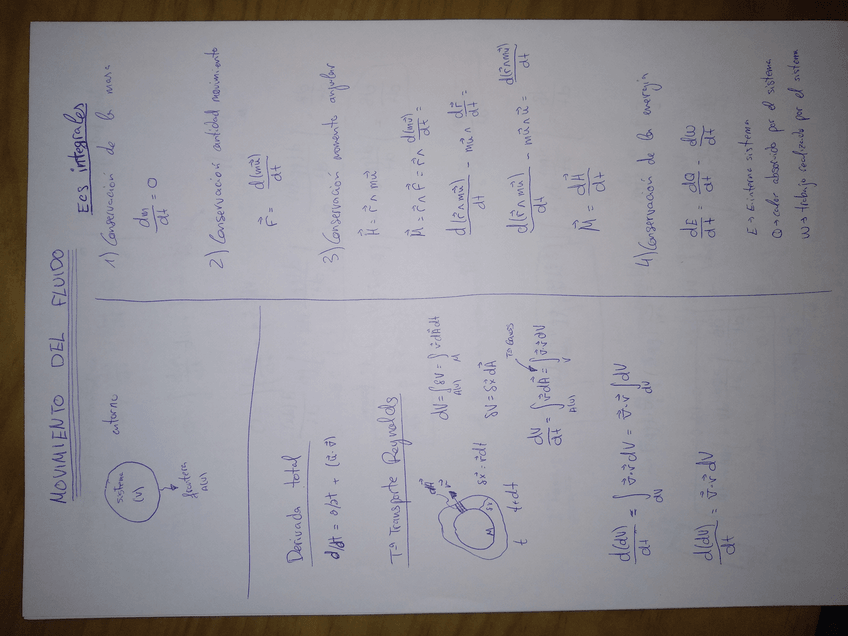 MOVIMIENTO DEL FLUIDO
sistema
(V)
entorno
frontera
A(V)
Derivada total
d/dt = ∂/∂t + (ū·∇̄)
Tª Transporte Reynolds
dA⃗
v⃗
δV
A
t
t+dt
δx⃗ = v⃗dt
dV = ∫_{A(V)} δV = ∫_A v⃗dA⃗dt
δV = δx⃗ dA⃗
Tª Gauss
dV/dt = ∫_{A(V)} v⃗dA⃗ = ∫_V ∇⃗·v⃗dV
d(dV)/dt = ∫_{dV} ∇⃗·v⃗ dV = ∇⃗·v⃗ ∫_{dV} dV
d(dV)/dt = ∇⃗·v⃗ dV
Ecs integrales
1) Conservación de la masa
dm/dt = 0
2) Conservación cantidad movimiento
F⃗ = d(mu⃗)/dt
3) Conservación momento angular
H⃗ = r⃗ ∧ mu⃗
M⃗ = r⃗ ∧ F⃗ = r⃗ ∧ d(mu⃗)/dt =
d(r⃗∧mu⃗)/dt - mu⃗ ∧ dr⃗/dt =
d(r⃗∧mu⃗)/dt - mu⃗∧u⃗ = d(r⃗∧mu⃗)/dt
M⃗ = dH⃗/dt
4) Conservación de la energía
dE/dt = dQ/dt - dW/dt
E → E interna sistema
Q → calor absorbido por el sistema
W → trabajo realizado por el sistema